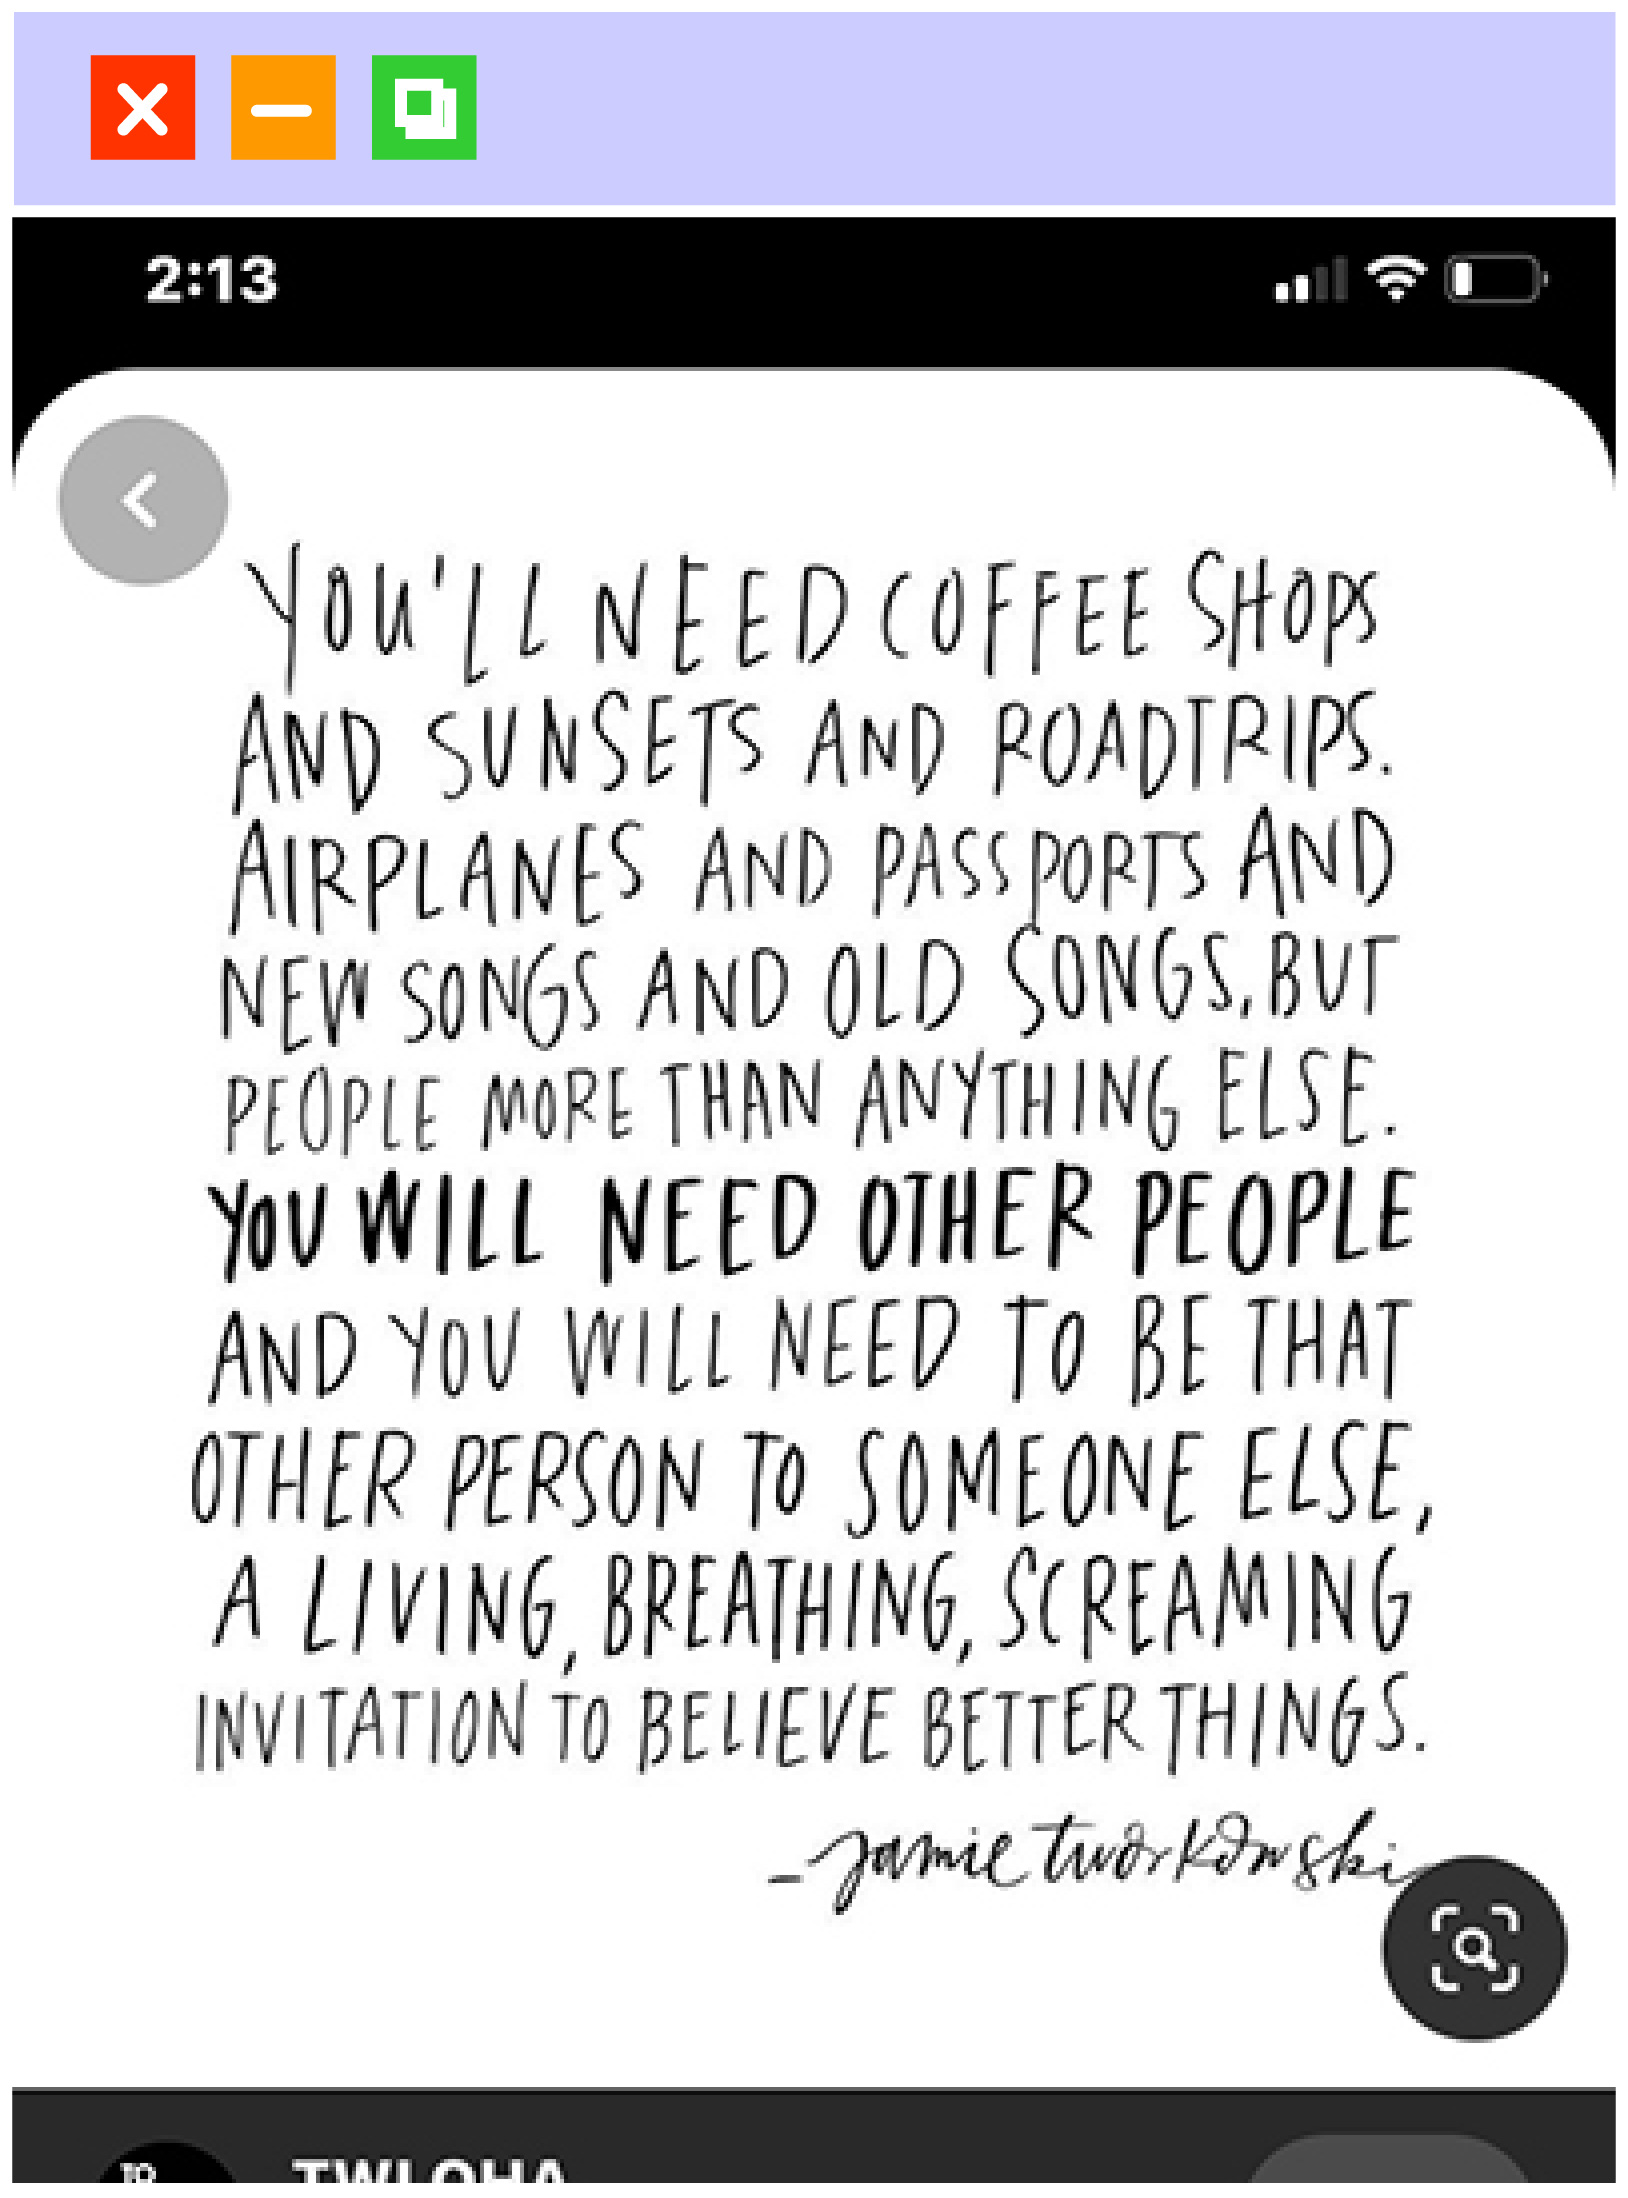 2:13
YOU'LL NEED COFFEE SHOPS
AND SUNSETS AND ROADTRIPS.
AIRPLANES AND PASSPORTS AND
NEW SONGS AND OLD SONGS, BUT
PEOPLE MORE THAN ANYTHING ELSE.
YOU WILL NEED OTHER PEOPLE
AND YOU WILL NEED TO BE THAT
OTHER PERSON TO SOMEONE ELSE,
A LIVING, BREATHING, SCREAMING
INVITATION TO BELIEVE BETTER THINGS.
- jamie tworkowski
TO
TWLOHA